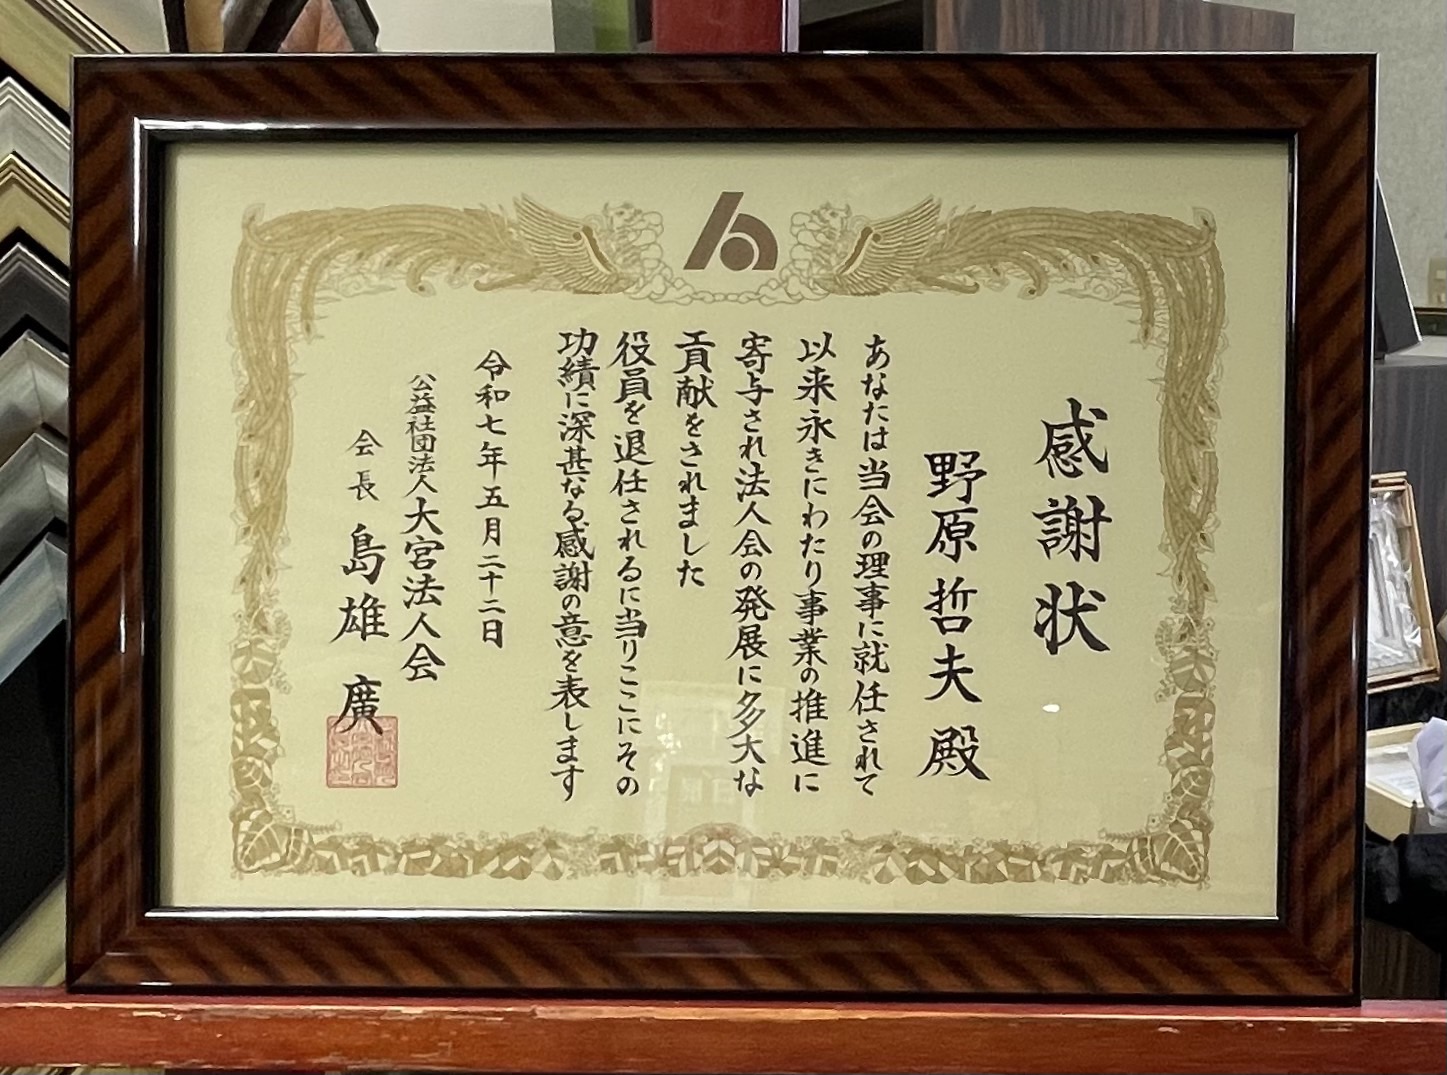 感謝状
野原哲夫殿
あなたは当会の理事に就任されて
以来永きにわたり事業の推進に
寄与され法人会の発展に多大な
貢献をされました
役員を退任されるに当りここにその
功績に深甚なる感謝の意を表します
令和七年五月二十二日
公益社団法人大宮法人会
会長島雄廣